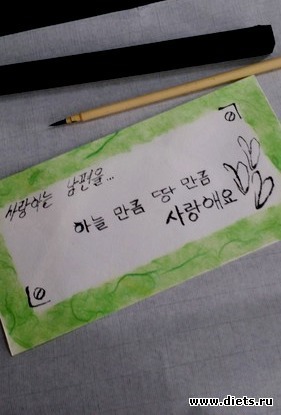 사랑하는 남편을...
하늘 만큼 땅 만큼
사랑애요
www.diets.ru